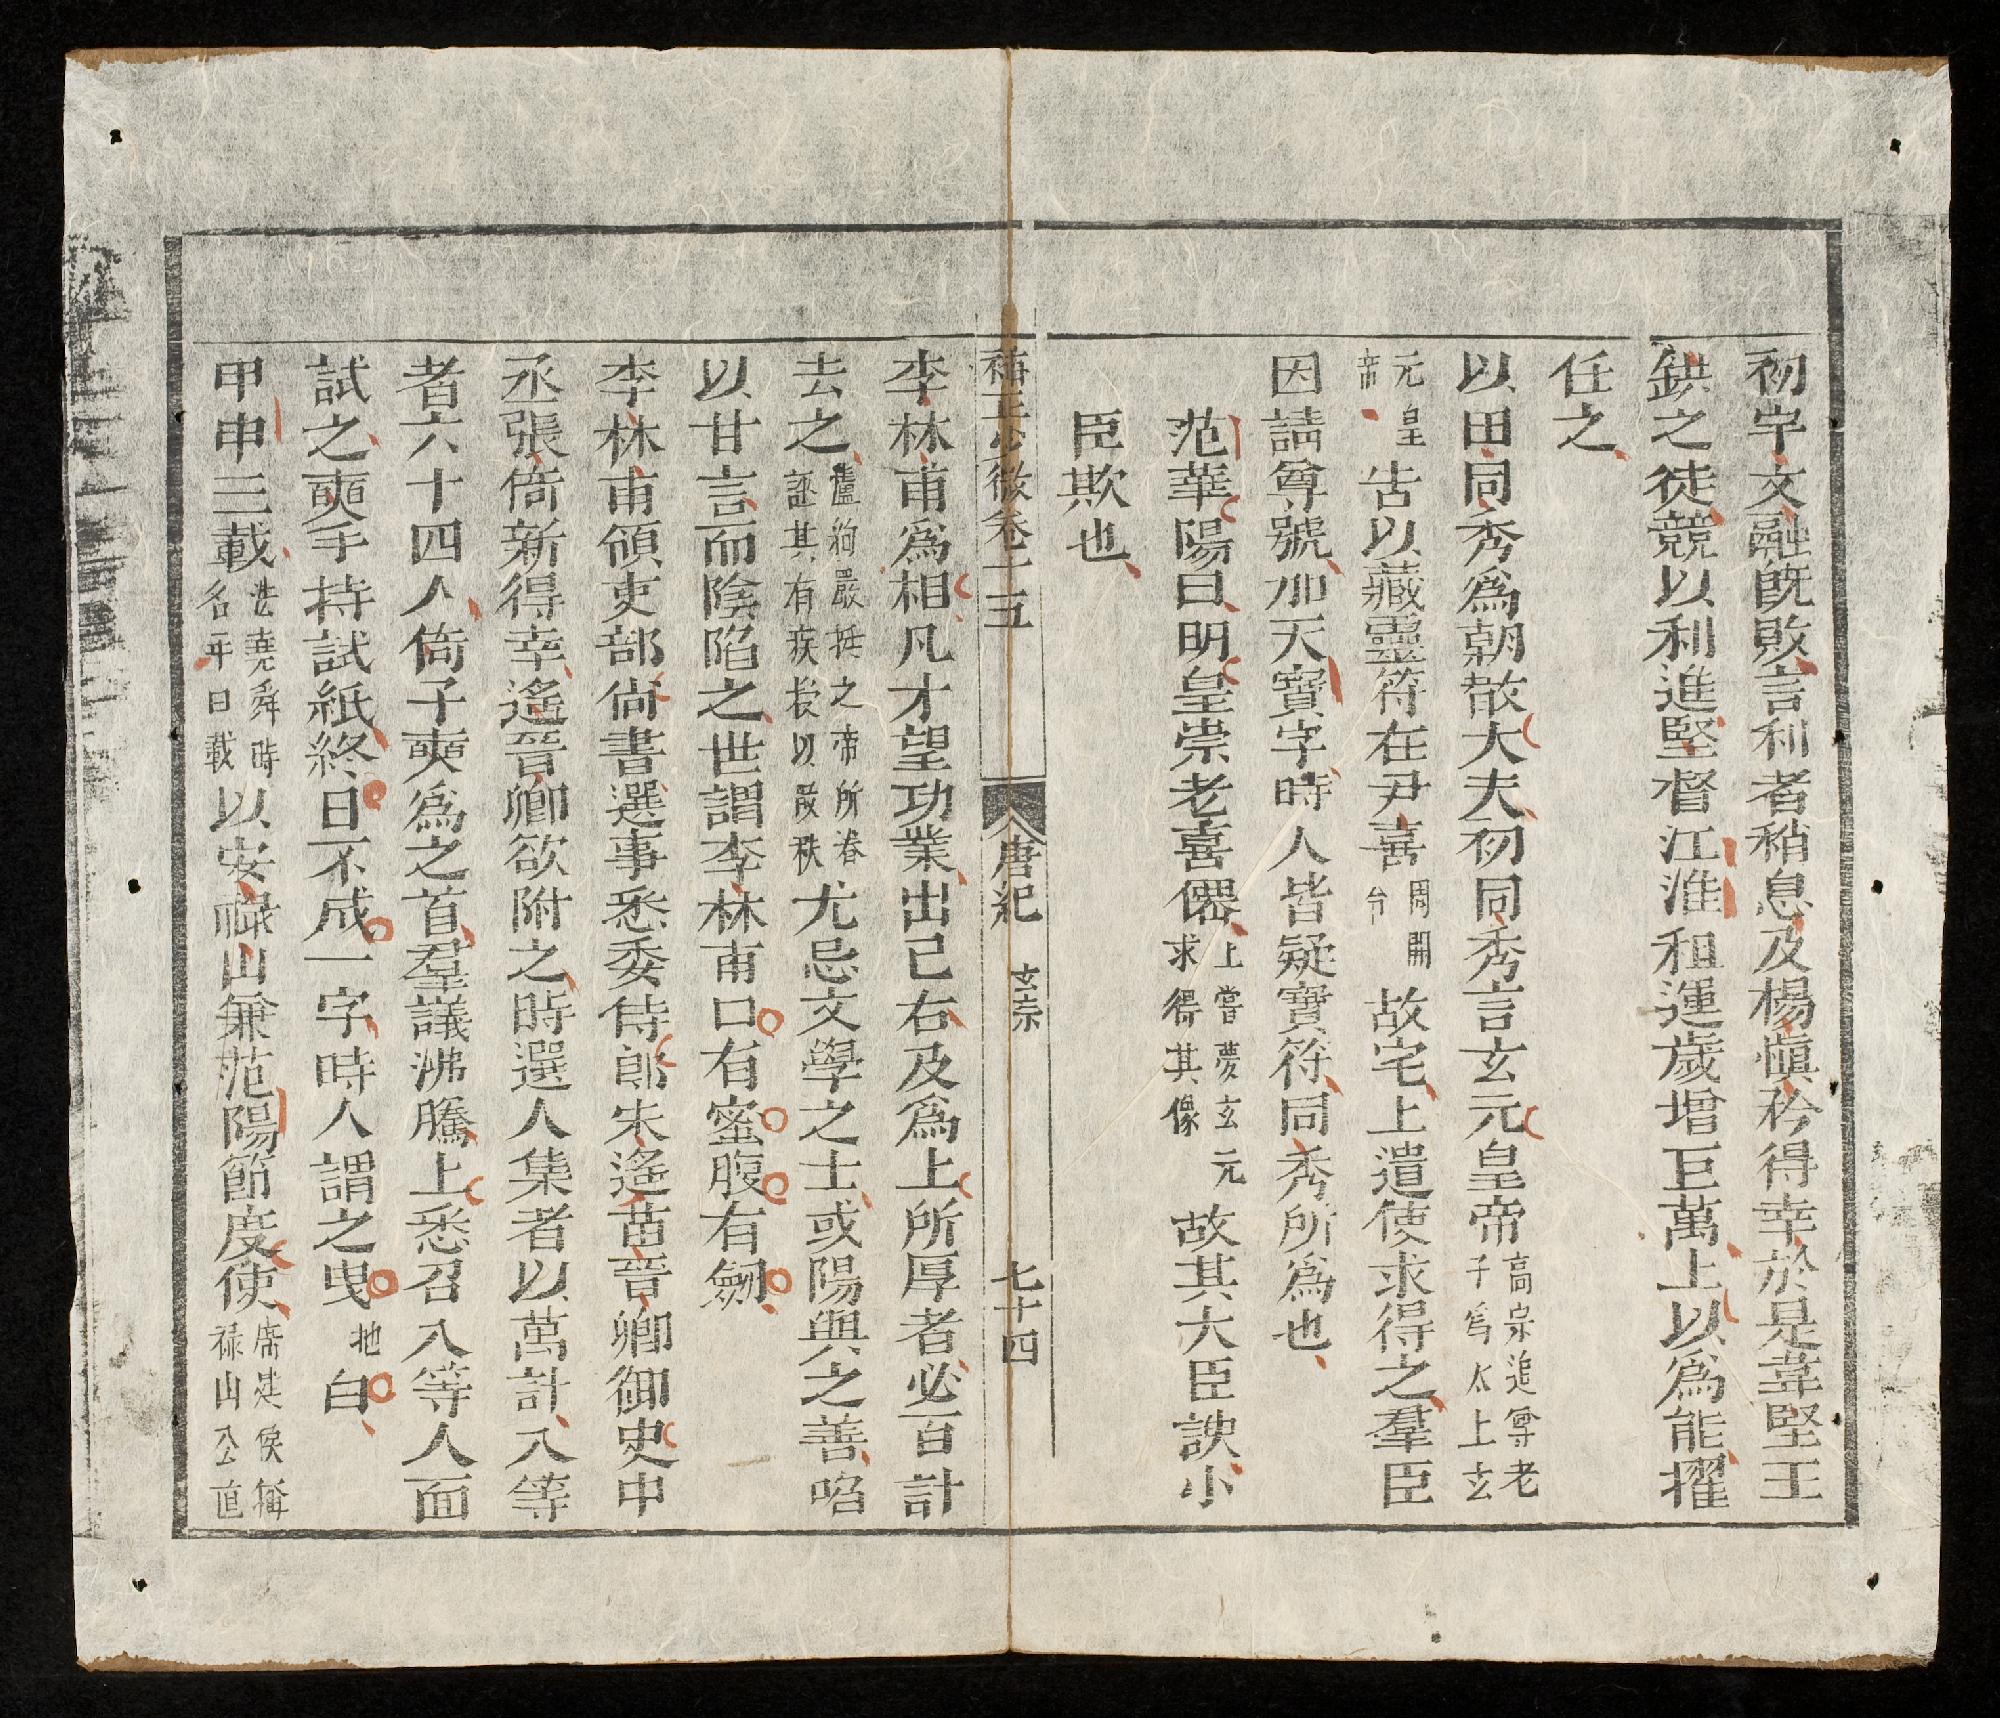 初宇文融既敗言利者稍息及楊慎矜得幸於是韋堅王
鉷之徒競以利進堅督江淮租運歲增巨萬上以爲能擢
任之
以田同秀爲朝散大夫初同秀言玄元皇帝高宗追尊老子爲太上玄
元皇帝告以藏靈符在尹喜周開台故宅上遣使求得之羣臣
因請尊號加天寶字時人皆疑寶符同秀所爲也
范華陽曰明皇崇老喜僊上嘗夢玄元求得其像故其大臣諛小
臣欺也
補正少微卷二五 唐紀 玄宗 七十四
李林甫爲相凡才望功業出己右及爲上所厚者必百計
去之盧絢嚴挺之帝所眷誣其有疾授以散秩尤忌文學之士或陽與之善啗
以甘言而陰陷之世謂李林甫口有蜜腹有劒
李林甫領吏部尙書選事悉委侍郎宋遙苗晉卿御史中
丞張倚新得幸遙晉卿欲附之時選人集者以萬計入等
者六十四人倚子奭爲之首羣議沸騰上悉召入等人面
試之奭手持試紙終日不成一字時人謂之曳地白
甲申三載法堯舜時名年曰載以安祿山兼范陽節度使席建侯稱祿山公直